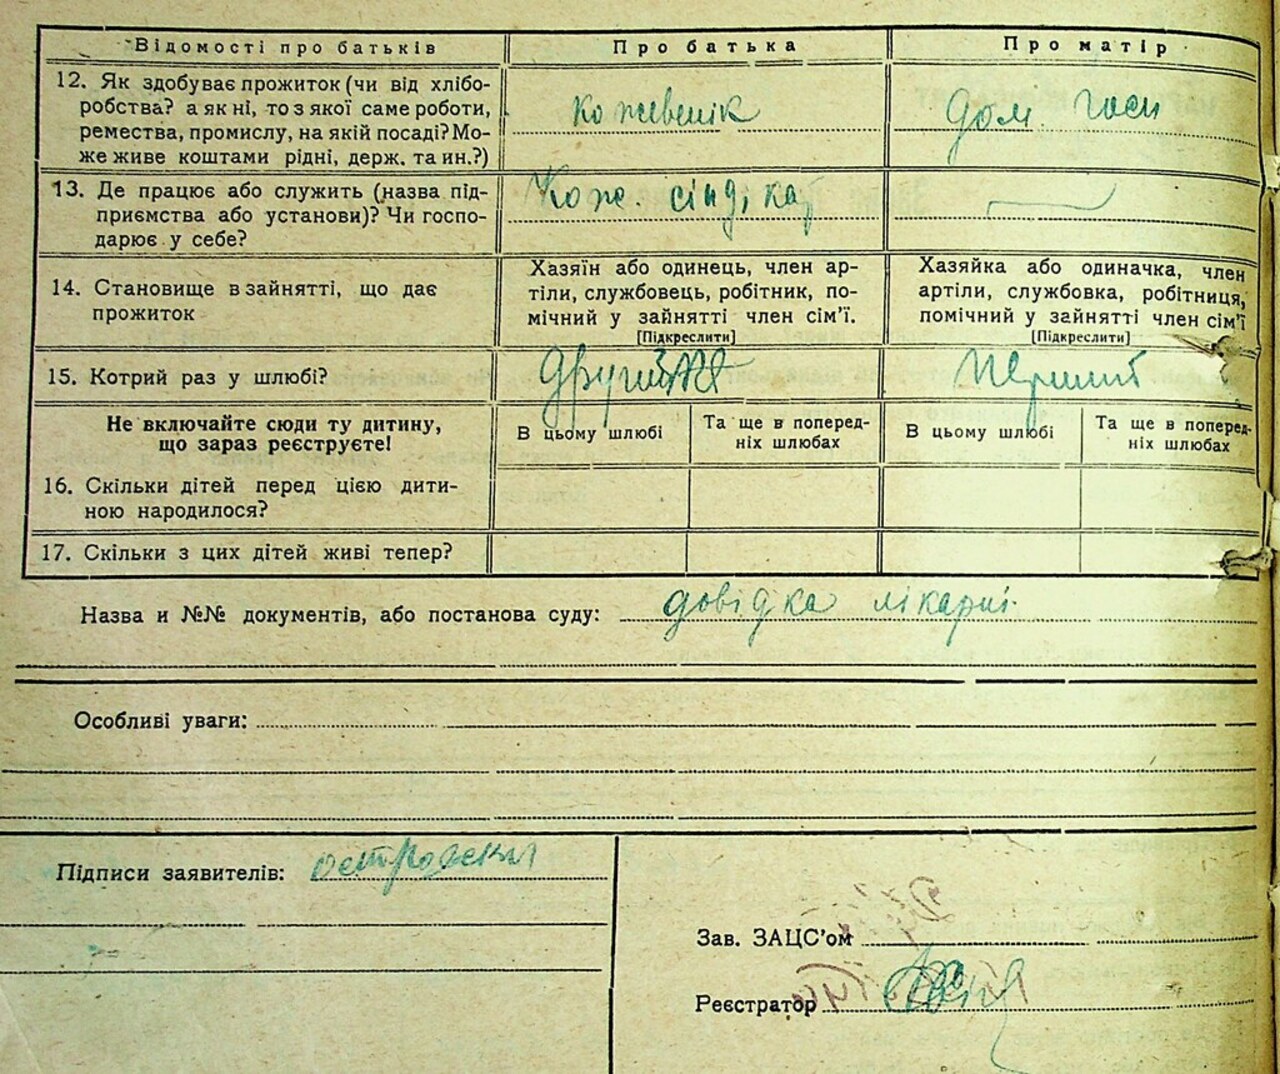 Відомості про батьків Про батька Про матір
12. Як здобуває прожиток (чи від хлібо-
робства? а як ні, то з якої саме роботи,
ремества, промислу, на якій посаді? Мо-
же живе коштами рідні, держ. та ин.?)
кожевенік
Дом. госп
13. Де працює або служить (назва під-
приємства або установи)? Чи госпо-
дарює у себе?
Кож. сіндікат
14. Становище в зайнятті, що дає
прожиток
Хазяїн або одинець, член ар-
тіли, службовець, робітник, по-
мічний у зайнятті член сім’ї.
[Підкреслити]
Хазяйка або одиначка, член
артіли, службовка, робітниця,
помічний у зайнятті член сім’ї
[Підкреслити]
15. Котрий раз у шлюбі?
Другий
Перший
Не включайте сюди ту дитину,
що зараз реєструєте!
В цьому шлюбі
Та ще в поперед-
ніх шлюбах
В цьому шлюбі
Та ще в поперед-
ніх шлюбах
16. Скільки дітей перед цією дити-
ною народилося?
17. Скільки з цих дітей живі тепер?
Назва и №№ документів, або постанова суду: довідка лікарні
Особливі уваги:
Підписи заявителів:
Зав. ЗАЦС’ом
Реєстратор